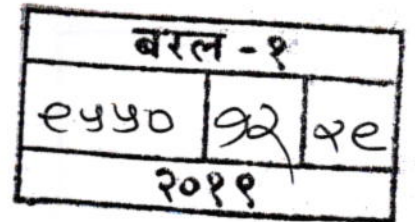 बरल - १
९५५० १२ २९
२०१९